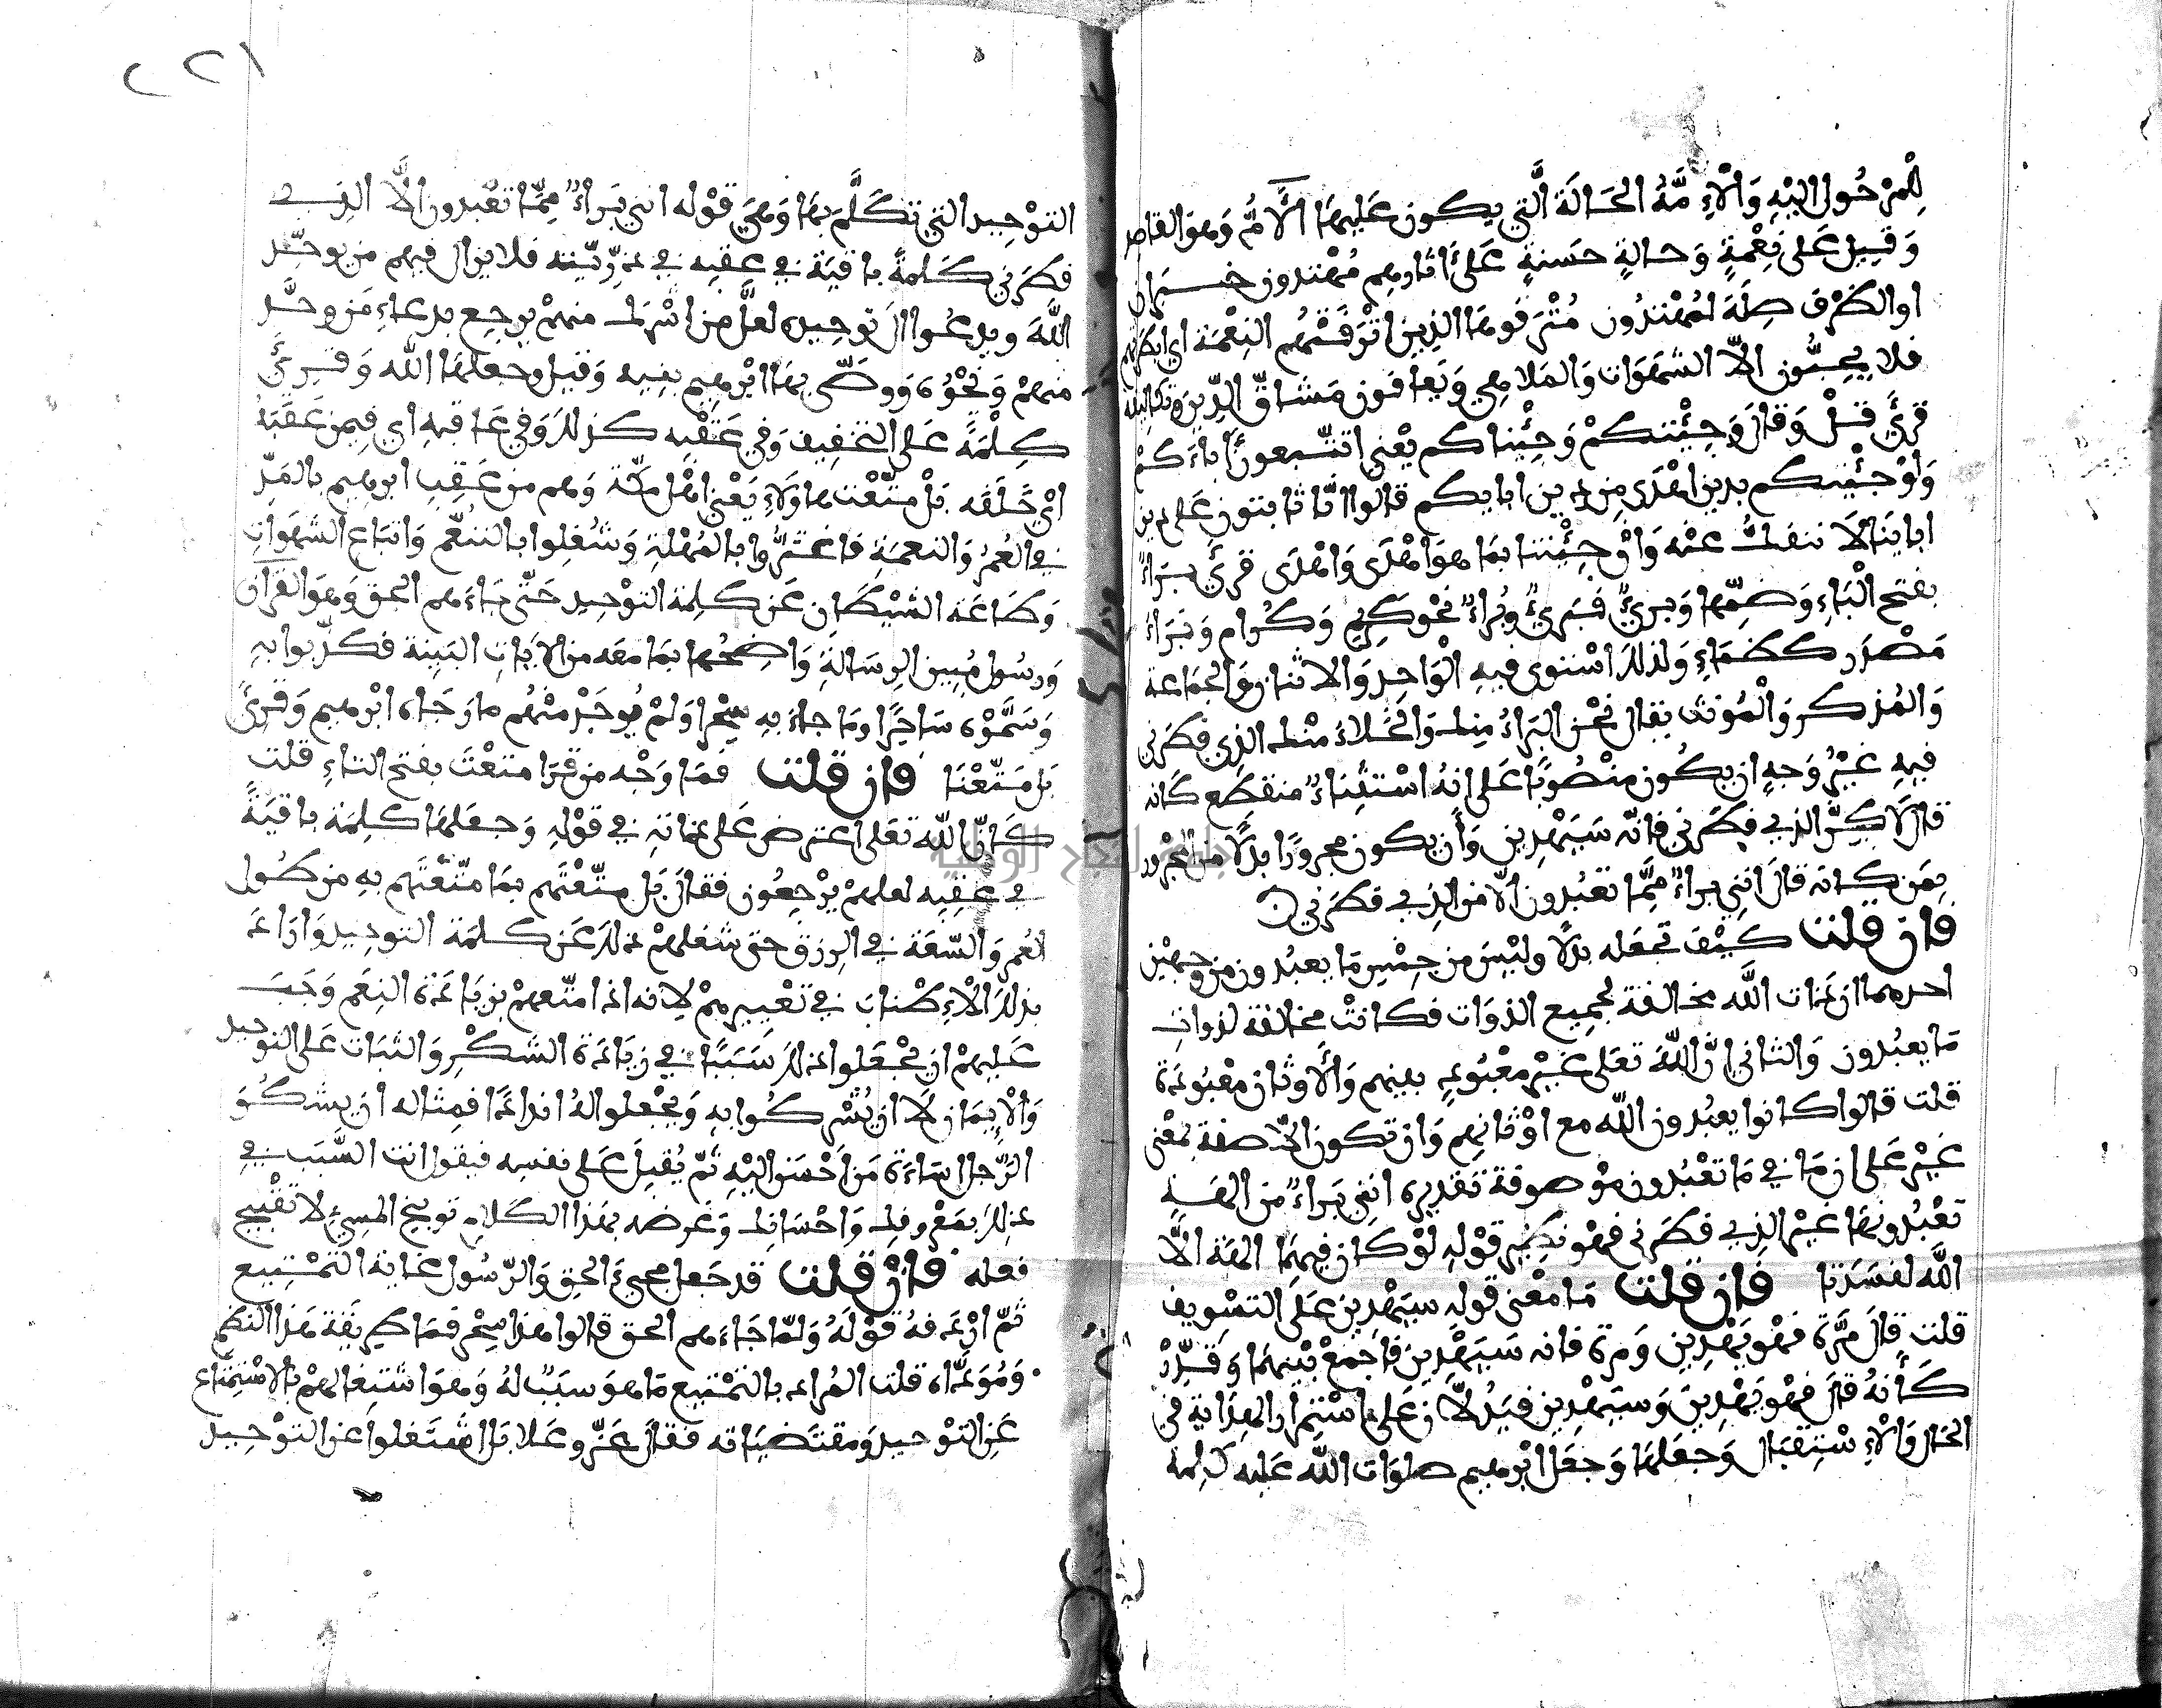 للمرحول اليه وَالْاِمَّةُ الحَالَة الَّتي يكون عَليهَا الْأَمُّ وَهوَ القاصد
وَقيل عَلى نِعْمَةٍ وَحالةٍ حسَنةٍ عَلَى اَثارهِم مُهْتدون خبرَان
او الظرْف صِلَة لمُهْتدُون مُتْرَفوهَا الذين اتْرَفَتْهُم النِعْمَة اي ابطرتهم
فلا يحبُّون الاّ الشهَوَات وَالمَلاهِي وَيَعافون مَشَاقّ الدِّين وتكاليفه
قرئَ قلْ وَقالَ وَجِئْتكمْ وَجِئْناكم يعْني اتتّبعون اٰباءَكمْ
وَلوْ جئْتكم بدين اهْدَى مِن دين ابايكم قالوا انّا ثابتون عَلى دين
اباينا لَا ننفك عنْه وَانْ جِئْتنا بمَا هوَ اهْدَى وَاهْدَى قرئَ بَرَاءٌ
بفتح الْبَاءِ وَضمِّها وَبرئٌ فبَرِيءٌ وبُراءٌ نحْو كَرِيمٍ وَكُرام وَبَرَاءٌ
مَصْدَر كظمَاءٍ وَلذلكَ اسْتوى فيهِ الْوَاحِد وَالاثنان وَالجَمَاعَة
وَالمُذكر وَالْمُؤنث يقال نحْن البَرَاءُ مِنك وَالخَلاءُ منْك الذي فطَرَني
فيهِ غيْرُ وَجهٍ ان يكُون منْصُوبًا عَلى انهُ اسْتثناءٌ منقطع كَانه
قالَ لَكِنّ الذي فطَرَني فانّه سَيَهْدِين وَأن يكون مجرورًا بدلًا من المجْرور
بِمَن كانه قالَ انني براءٌ مِمَّا تعْبُدون الّا من الذي فطَرَني
فان قلت كيْفَ تجعَله بدلًا وليْسَ من جِنْسِ مَا يعبُدون من وجهيْن
احدهما ان ذات اللَّه مخالفة لجمِيع الذوَات فكانتْ مخالفة لذوات
مَا يعبُدون وَالثاني انَّ اللَّهَ تعَلى غيْر معْبُودٍ بينهم وَالأَوثان معْبُودة
قلت قالوا كانوا يعبُدون اللَّه مع اوْثانِهم وَان تكون الّا صفة بمَعْنى
غيْر عَلى ان مَا في مَا تعْبُدون موْصوفة تقديره انني بَراءٌ من الهَةٍ
تعْبُدونهَا غيْر الذي فطرَني فهْو نظِير قوْلهِ لوْ كان فيهمَا الهَة الَّا
اللَّه لفسَدَتا فان قلت مَا مَعْنى قوله سيَهْدِين عَلى التسْوِيف
قلت قالَ مَرَّة فهْو يَهْدِينِ وَمرة فانه سَيَهْدِين فاجْمعْ بيْنهمَا وَقدِّرْ
كَأنهُ قالَ فهْو يَهْدِينَ وَسيَهْدِين فيَدُلاَّن عَلى اسْتمْرار الهدَاية في
الحَال وَالْاِسْتِقبَال وَجعَلهَا وَجعَل ابْرهيم صلوَات اللَّه عَليه كلِمة
التوْحِيد التي تكَلَّمَ بهَا وَهيَ قوْله انني بَراءٌ مِمَّا تعْبدون الَّا الذي
فطرَني كَلمةً باقيَة في عَقِبه في ذرِّيته فلا يزال فيهم من يوحِّد
اللَّهَ ويدعُوا الى توحِيده لعلَّ من اشْرك منهمْ يرجِع بدعاءِ مَن وحَّد
منهمْ وَنحْوُه وَوصَّى بهَا ابْرهيم بنيه وَقيل وجعَلهَا اللَّه وَقرِئَ
كِلْمَةً عَلى التخفِيف وَفي عَقْبِه كذلك وَفي عَاقبهِ اي فيمن عَقبَهُ
ايْ خَلَفه بَلْ متّعْت هاوَلَاءِ يَعْني اهْل مكّة وَهم من عَقِبِ ابرهيم بالمَدّ
في العُمُر وَالنعمَة فاغترُّوا بالمُهْلةِ وَشُغلوا بالتنعّم وَاتبَاع الشهَوَاتِ
وَطاعَة الشيْطَان عَن كلِمة التوْحِيد حَتّى جَاءَهم الحق وَهوَ القرآن
وَرسُول مُبِين الرسَالةِ وَاضِحُها بمَا معَه من الايَاتِ البَينة فكذّبوا بهِ
وَسَمَّوْه سَاحِرًا ومَا جاءَ بهِ سِحْرا وَلمْ يُوجَدْ منْهُم ما رَجَاه ابْرهيم وَقرئَ
بَل مَتّعْنا فان قلت فمَا وَجْه من قرَا متعْتَ بفتح التاءِ قلت
كَانّ اللَّه تعَلى اعترض عَلى ذاتهِ في قوْلهِ وَجعَلهَا كلِمَة باقيَةً
في عقِبِه لعلهمْ يرْجِعُون فقالَ بَل متّعْتهم بمَا متّعْتهم بهِ من طول
العُمر وَالسّعَة في الرزق حتى شغلهمْ ذلكَ عَن كلمَة التوحِيد وَارَادَ
بذلكَ الْاِطنابَ في تعْييرهمْ لِانه اذا متّعهمْ بزيَادَة النِعَم وَجَبَ
عَليهمْ ان يجْعَلوا ذلكَ سَبَبًا في زيَادَة الشكْرِ وَالثبَات عَلى التوحيد
وَالْإيمَان لَا ان يُشْركُوا بهِ وَيجْعلوا لهُ اندادًا فمِثاله ان يشكُوَ
الرَّجل اسَاءَة مَن اَحْسَن اليْهِ ثمّ يُقبِل عَلى نفسِه فيقول انت السَّبَب في
ذلكَ بمَعْروفك وَاحْسَانك وَغرضه بهَذا الكلام توبيخ المسِيءِ لا تقْبيح
فعله فان قلت قد جَعل مجيءَ الحق وَالرّسُول غاية التمْتيع
ثمّ ارْدَفهُ قوْلَهُ وَلمّا جَاءَهم الحق قالوا هذا سِحْر فمَا طريقة هَذا النظم
وَمُوَدَّاه قلت المُراد بالتمْتيع مَا هوَ سبَبٌ لهُ وَهوَ اشتِغالهمْ بالاسْتِمْتاع
عَن التوْحيد وَمقتضَيَاته فقالَ عَزَّ وعَلا بَل اشتَغلوا عن التوْحِيد